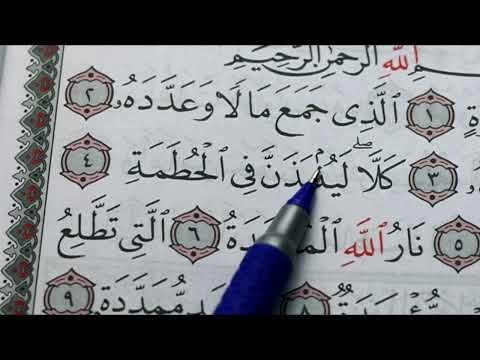 اللَّهِ الرَّحْمَٰنِ الرَّحِيمِ
١ الَّذِى جَمَعَ مَالًا وَعَدَّدَهُۥ ٢
٣ كَلَّاۖ لَيُنۢبَذَنَّ فِى الْحُطَمَةِ ٤
٥ نَارُ اللَّهِ ٦ الَّتِى تَطَّلِعُ
٨ مُّمَدَّدَةٍ ٩